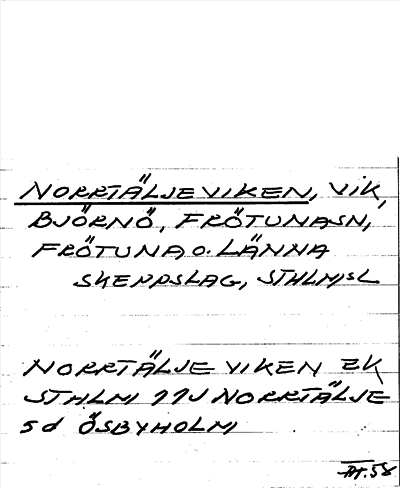 NORRTÄLJEVIKEN, VIK,
BJÖRNÖ, FRÖTUNASN,
FRÖTUNA O. LÄNNA
SKEPPSLAG, STHLMSL
NORRTÄLJEVIKEN EK
STHLM 11J NORRTÄLJE
SD ÖSBYHOLM